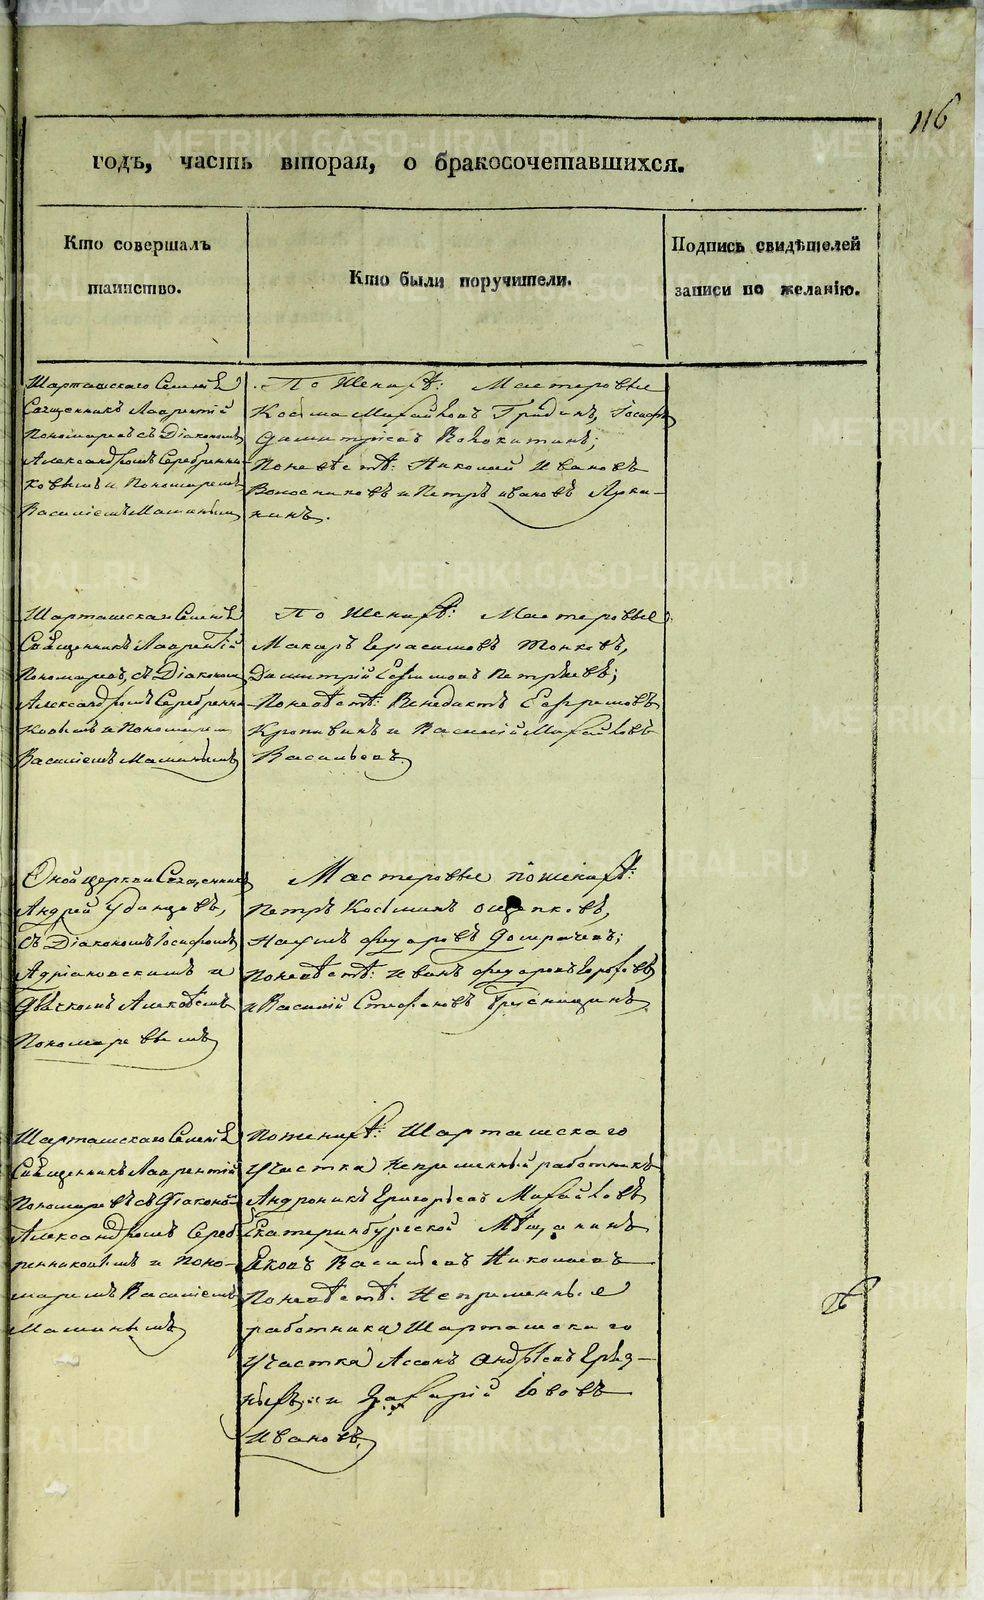 116
годъ, часть вторая, о бракосочетавшихся.
Кто совершалъ
таинство.
Кто были поручители.
Подпись свидѣтелей
записи по желанію.
Шарташскаго Селенія
Священникъ Лаврентій
Пономаревъ съ Діакономъ
Александромъ Серебренни-
ковымъ и Пономаремъ
Василіемъ Маминымъ
По Женихѣ: Мастеровые
Косьма Михайловъ Гридинъ, Іосифъ
Димитріевъ Волокитинъ;
По невѣстѣ: Николай Ивановъ
и Петръ Ивановъ
нинъ.
Шарташскаго Селенія
Священникъ Лаврентій
Пономаревъ, съ Діакономъ
Александромъ Серебренни-
ковымъ и Пономаремъ
Василіемъ Маминымъ
По Женихѣ: Мастеровые
Макаръ Герасимовъ Тонковъ,
Димитрій Петровъ;
По невѣстѣ: Венедиктъ Ефремовъ
Кропивинъ и Василій Михайловъ
Васильевъ.
Оной церкви Священникъ
Андрей Удинцевъ,
съ Діакономъ Іосифомъ
Адріановскимъ и
Дьячкомъ Алексѣемъ
Пономаревымъ
Мастеровые по женихѣ:
Петръ Косьминъ Ощепковъ,
Наумъ Федоровъ Домрачевъ;
по невѣстѣ: Иванъ Федоровъ
и Василій Стефановъ
Шарташскаго Селенія
Священникъ Лаврентій
Пономаревъ съ Діакономъ
Александромъ Сереб-
ренниковымъ и Поно-
маремъ Василіемъ
Маминымъ
По женихѣ: Шарташскаго
участка непременный работникъ
Андроникъ Григорьевъ Михайловъ
Екатеринбургской Мѣщанинъ
Яковъ Васильевъ Николаевъ
По невѣстѣ: Непременные
работники Шарташскаго
участка Ассонъ Андреевъ
и Захарій Іововъ
Ивановъ.